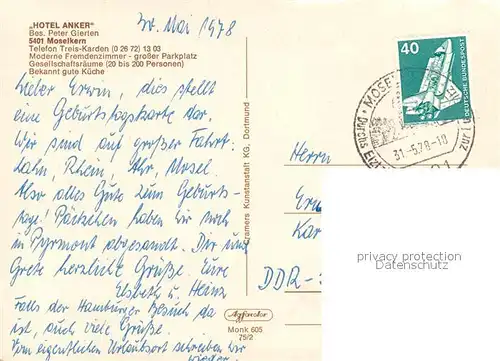 „HOTEL ANKER"
Bes. Peter Gierten
5401 Moselkern
Telefon Treis-Karden (0 26 72) 13 03
Moderne Fremdenzimmer - großer Parkplatz
Gesellschaftsräume (20 bis 200 Personen)
Bekannt gute Küche
30. Mai 1978
Lieber Erwin, dies stellt
eine Geburtstagskarte dar.
Wir sind auf großer Fahrt:
Lahn, Rhein, Ahr, Mosel.
Also alles Gute zum Geburts-
tage! Päckchen haben wir noch
in Pyrmont abgesandt. Dir und
Grete herzliche Grüße. Eure
Elsbeth u. Heinz
Falls der Hamburger Besuch da
ist, auch viele Grüße.
Vom eigentlichen Urlaubsort schreiben wir
wieder!
Cramers Kunstanstalt KG, Dortmund
Agfacolor
Monk 605
75/2
40
DEUTSCHE BUNDESPOST
MOSEL
Durchs
31.-5.78-18
zur
Herrn
Er
Kar
DDR-
privacy protection
Datenschutz